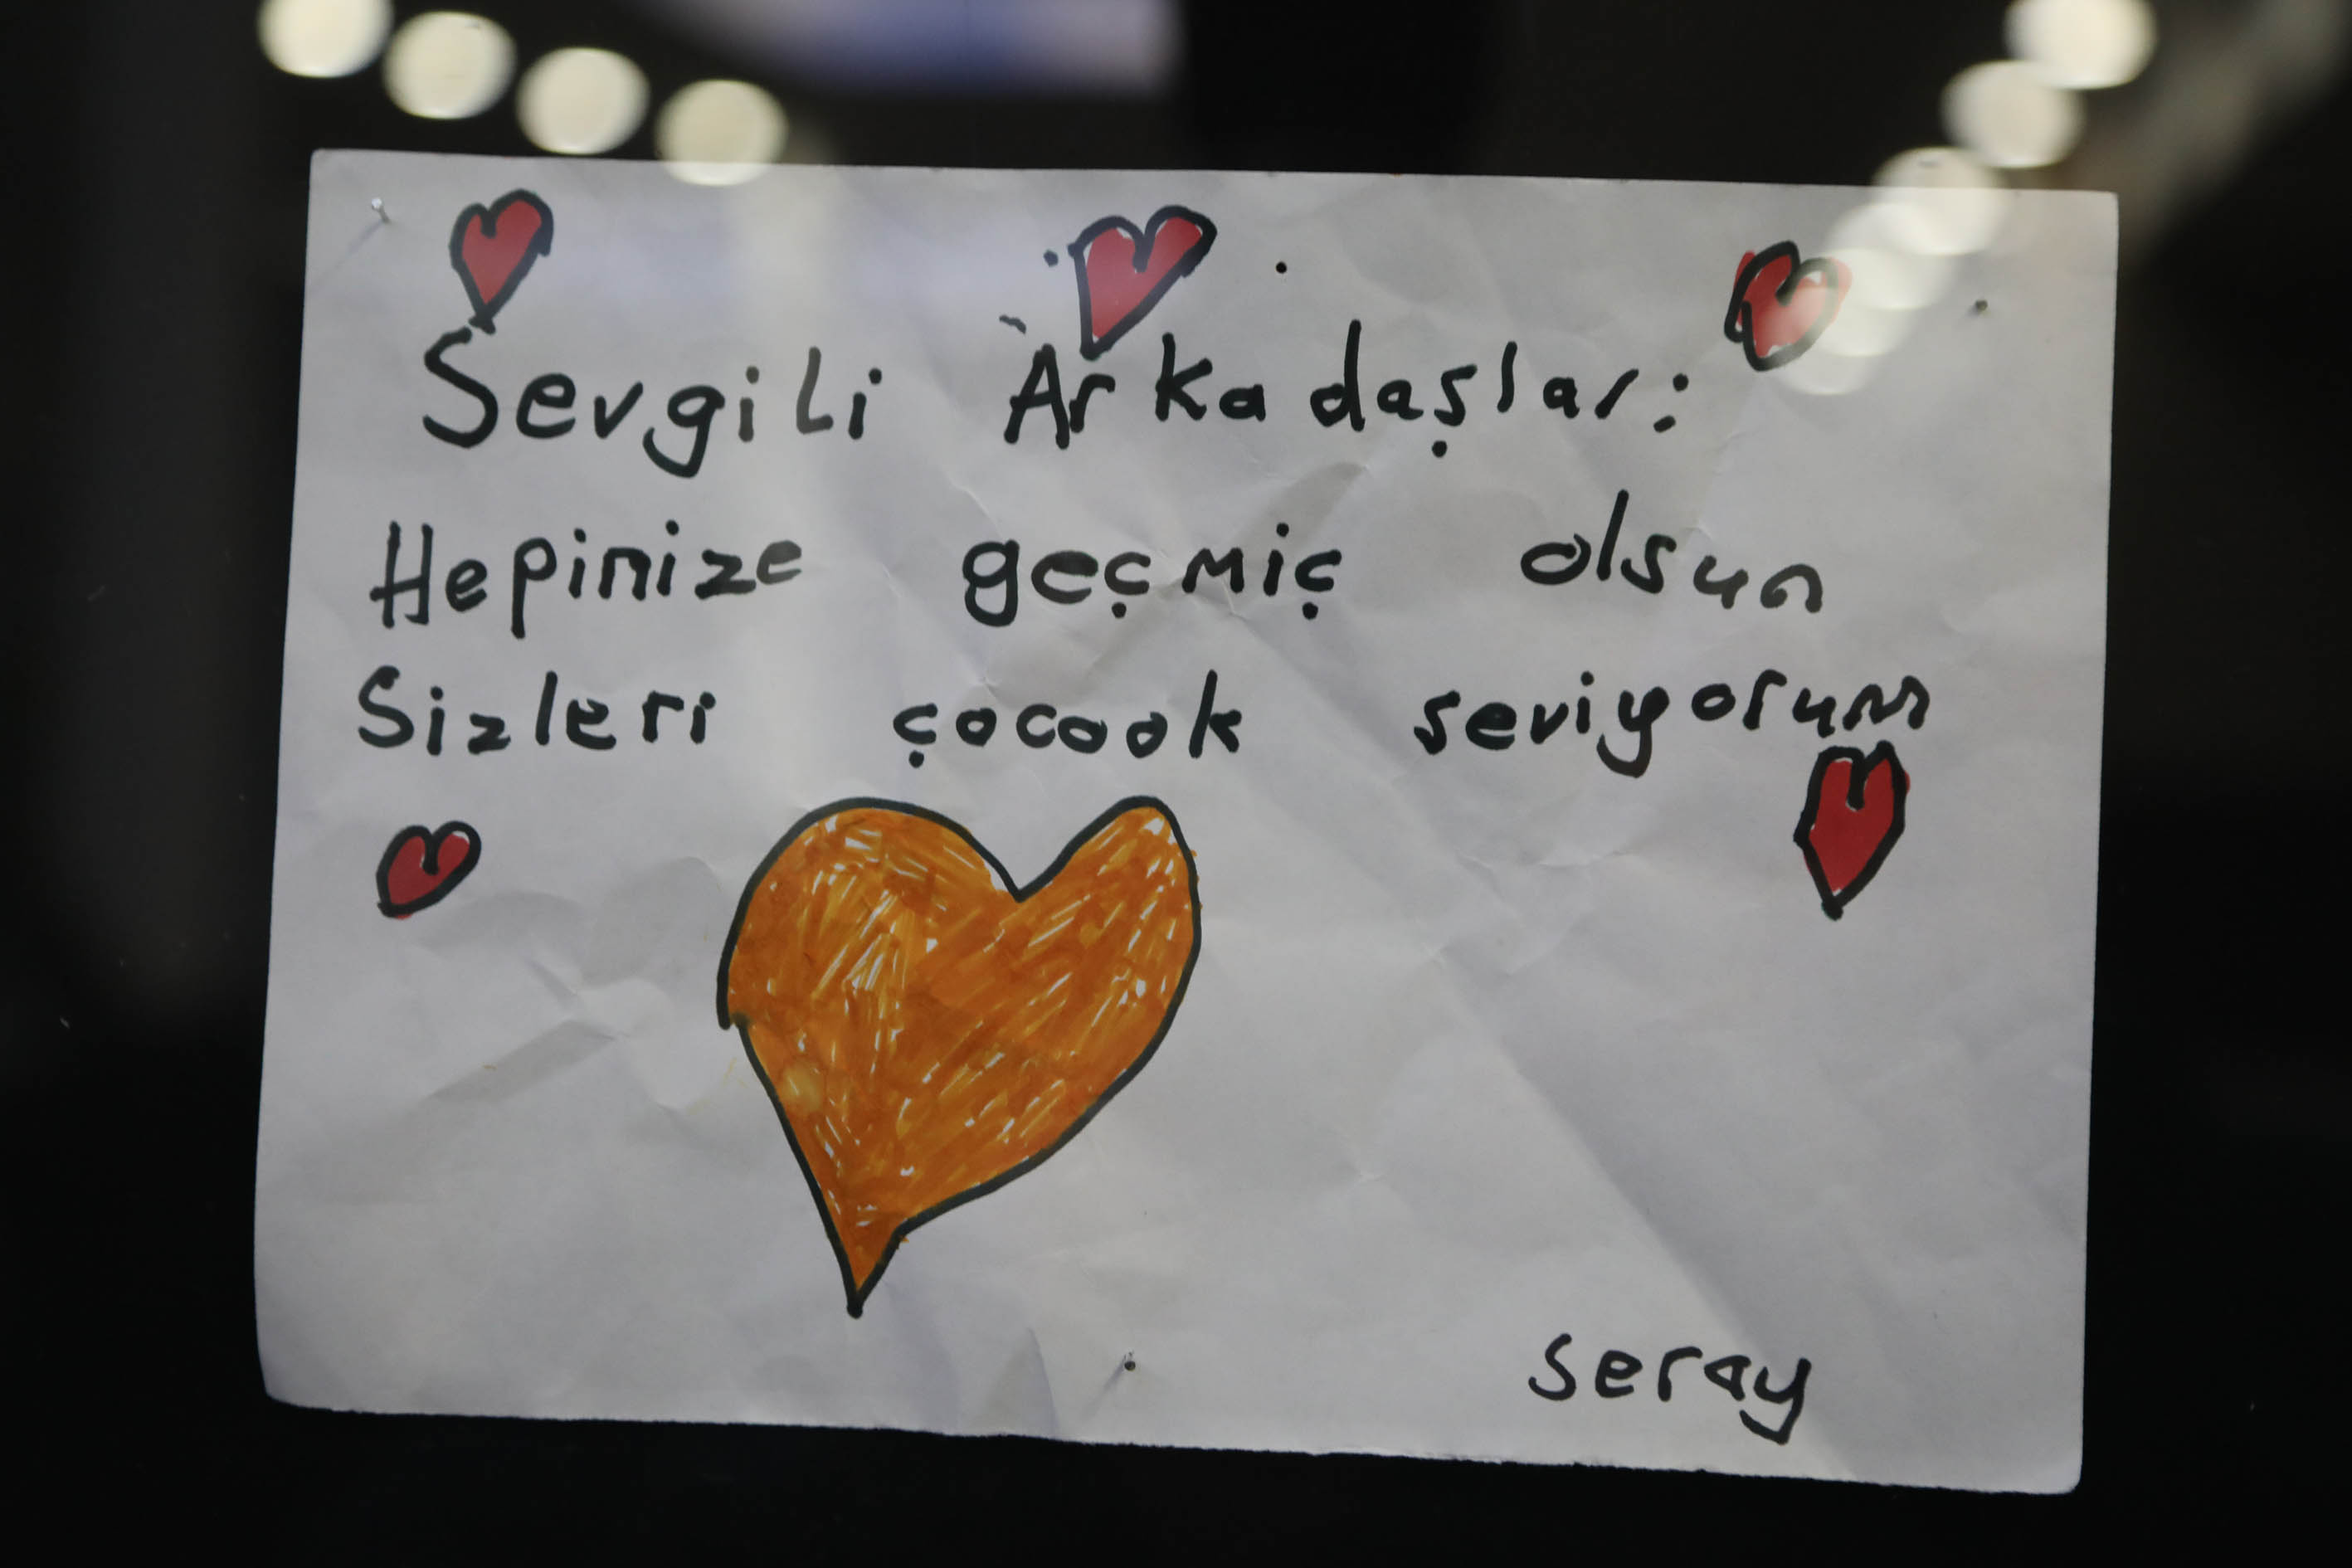 Sevgili Arkadaşlar:
Hepinize geçmiç olsun
Sizleri çocook seviyorum
seray